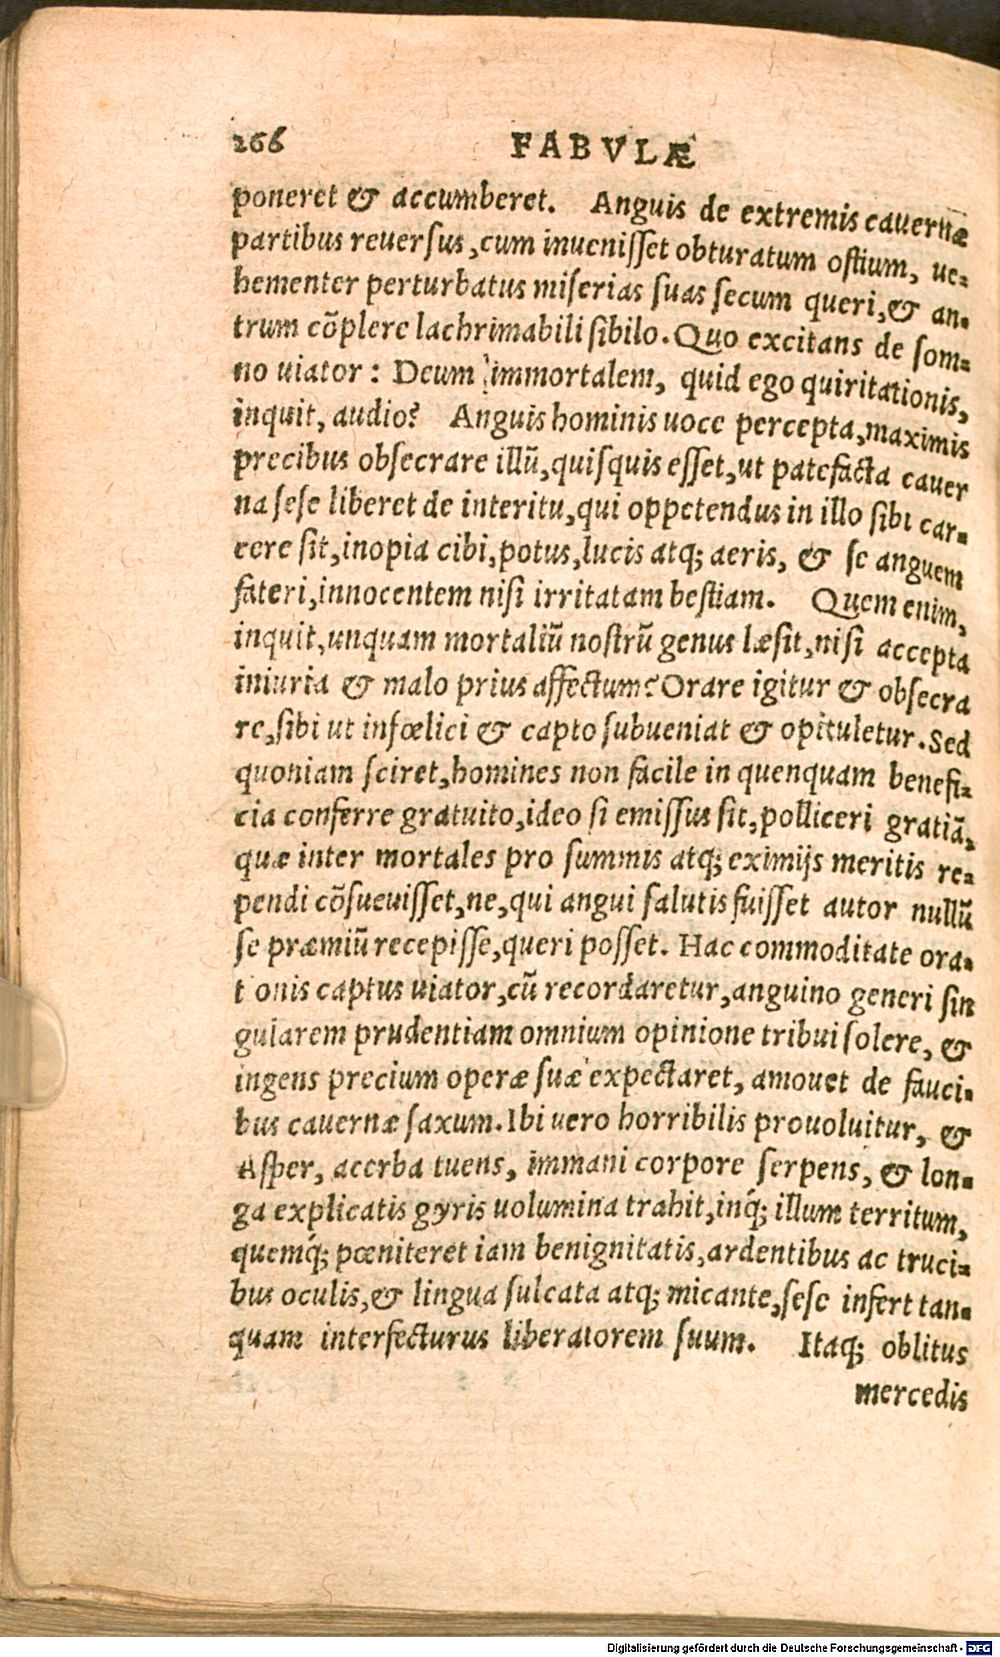 266 FABVLÆ
poneret & accumberet. Anguis de extremis cauernæ
partibus reuersus, cum inuenisset obturatum ostium, ue-
hementer perturbatus miserias suas secum queri, & an-
trum cõplere lachrimabili sibilo. Quo excitans de som-
no uiator: Deum immortalem, quid ego quiritationis,
inquit, audio? Anguis hominis uoce percepta, maximis
precibus obsecrare illũ, quisquis esset, ut patefacta cauer
na sese liberet de interitu, qui oppetendus in illo sibi car-
cere sit, inopia cibi, potus, lucis atq; aeris, & se anguem
fateri, innocentem nisi irritatam bestiam. Quem enim,
inquit, unquam mortaliũ nostrũ genus læsit, nisi accepta
iniuria & malo prius affectum? Orare igitur & obsecra
re, sibi ut infœlici & capto subueniat & opituletur. Sed
quoniam sciret, homines non facile in quenquam benefi-
cia conferre gratuito, ideo si emissus sit, polliceri gratiã,
quæ inter mortales pro summis atq; eximijs meritis re-
pendi cõsueuisset, ne, qui angui salutis fuisset autor nullũ
se præmiũ recepisse, queri posset. Hac commoditate ora-
t onis captus uiator, cũ recordaretur, anguino generi sin
gularem prudentiam omnium opinione tribui solere, &
ingens precium operæ suæ expectaret, amouet de fauci-
bus cauernæ saxum. Ibi uero horribilis prouoluitur, &
Asper, acerba tuens, immani corpore serpens, & lon-
ga explicatis gyris uolumina trahit, inq́; illum territum,
quemq́; pœniteret iam benignitatis, ardentibus ac truci-
bus oculis, & lingua sulcata atq; micante, sese infert tan-
quam interfecturus liberatorem suum. Itaq; oblitus
mercedis
Digitalisierung gefördert durch die Deutsche Forschungsgemeinschaft - DFG